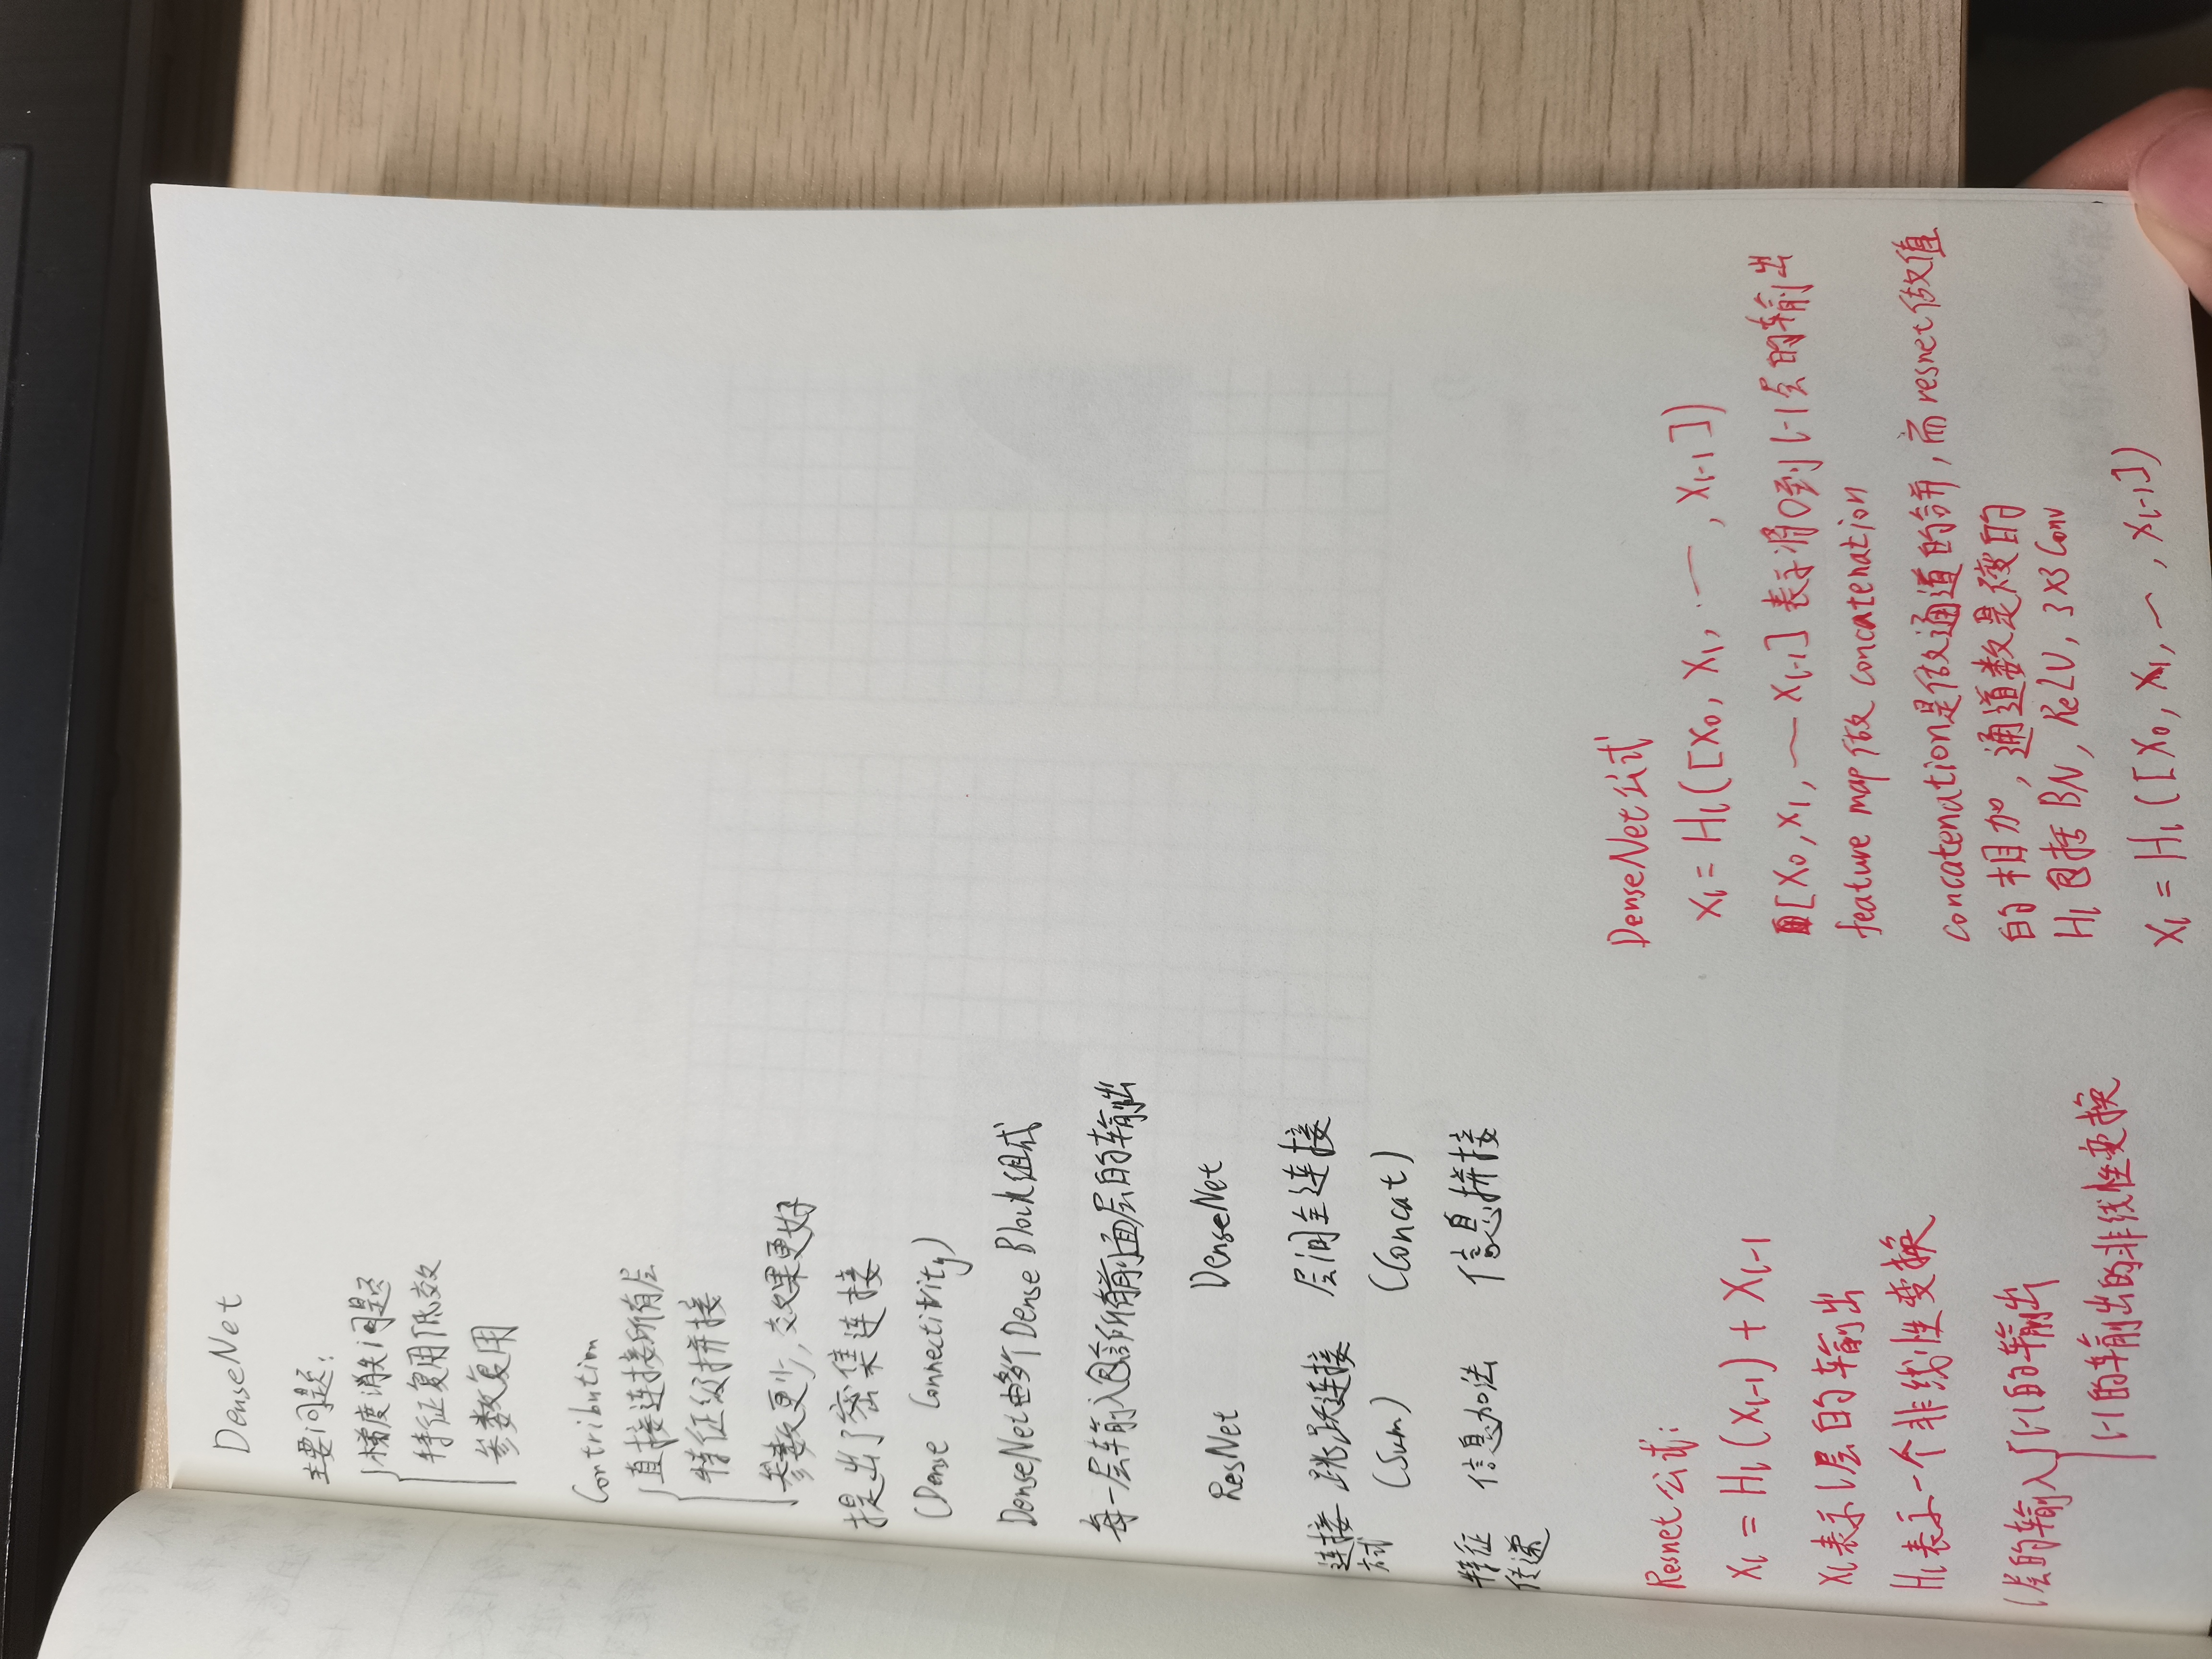 DenseNet
主要问题:
梯度消失问题
特征复用低效
参数复用
Contribution
直接连接所有层
特征级拼接
参数更少,效果更好
提出了密集连接
(Dense Connectivity)
DenseNet由多个Dense Block组成
每一层输入包含所有前面层的输出
ResNet DenseNet
连接方式 跳跃连接 层间全连接
(Sum) (Concat)
特征传递 信息加法 信息拼接
Resnet公式:
x_l = H_l(x_{l-1}) + X_{l-1}
x_l表示l层的输出
H_l表示一个非线性变换
l层的输入 l-1的输出
l-1的输出的非线性变换
DenseNet公式
x_l = H_l([x_0, x_1, ..., x_{l-1}])
[x_0, x_1, — x_{l-1}]表示将0到l-1层的输出
feature map做 concatenation
concatenation是做通道的合并,而resnet做值
的相加,通道数是的
H_l包括BN, ReLU, 3×3 Conv
x_l = H_l([x_0, x_1, —, x_{l-1}])